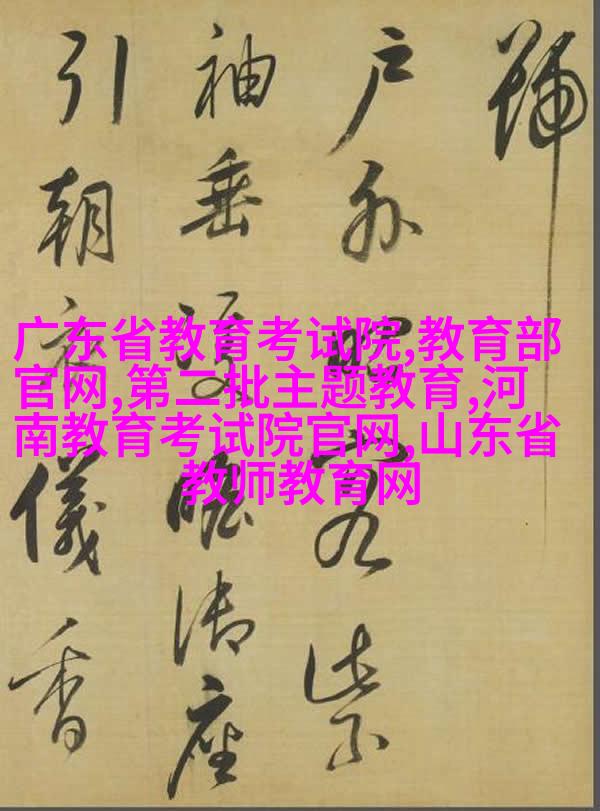 广东省教育考试院,教育部
官网,第二批主题教育,河
南教育考试院官网,山东省
教师教育网
號
户外昭容紫
袖垂雙瞻御座
引朝儀香